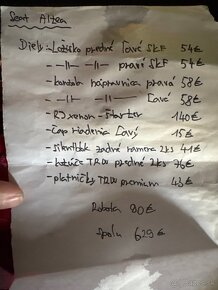 Seat Altea
Diely - Ložisko predné ľavé SKF 54€
- -||- -||- pravé SKF 54€
- kardola nápravnica pravá 58€
- -||- -||- ľavé 58€
- R3 xenon - štarter 140€
- čap riadenia ľavý 15€
- silentblok zadné ramena 2ks 41€
- kotúče TRW predné 2ks 76€
- platničky TRW premium 43€
Robota 90€
spolu 629€